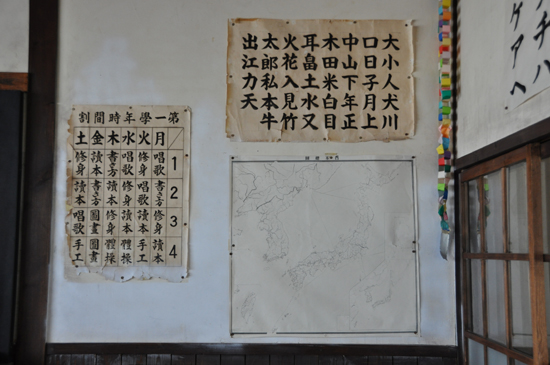 大小人犬川
口日子月上
中山下年正
木田米白目
耳畠土水又
火花入見竹
太郎私本牛
出江力天
第一學年時間割
月火水木金土
1 唱歌 修身 唱歌 書き方 讀本 修身
2 書き方 唱歌 修身 讀本 書き方 讀本
3 修身 讀本 讀本 修身 圖畫 唱歌
4 讀本 手工 體操 體操 圖畫 手工
チハ
ケアヘ